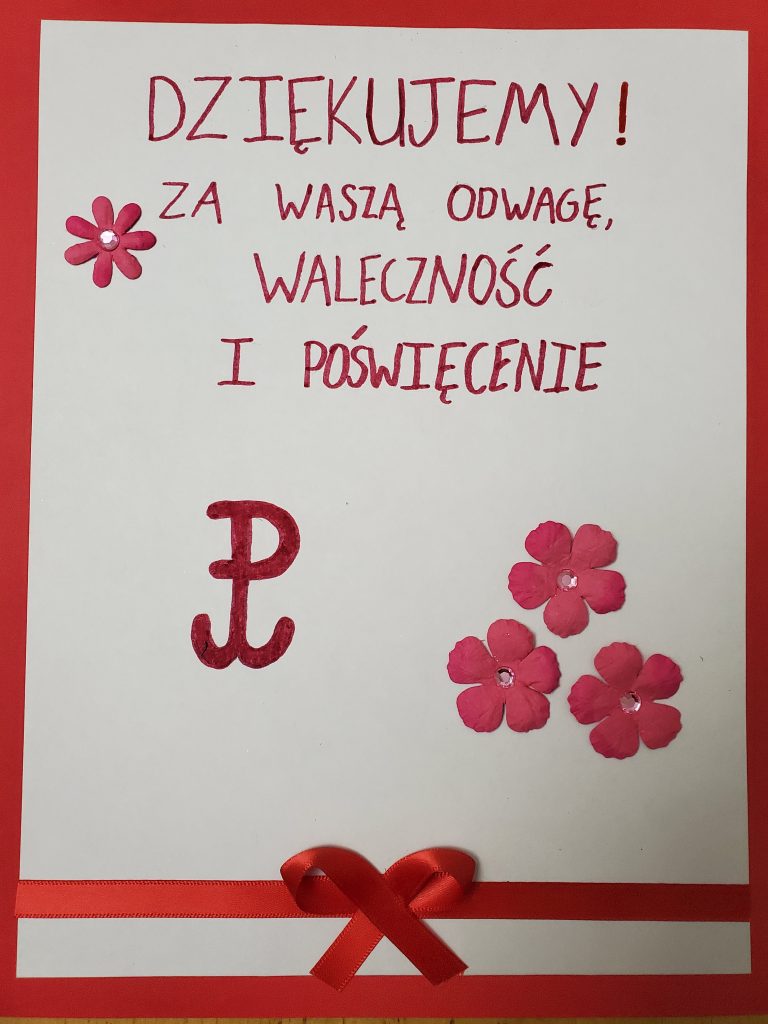 DZIĘKUJEMY!
ZA WASZĄ ODWAGĘ,
WALECZNOŚĆ
I POŚWIĘCENIE